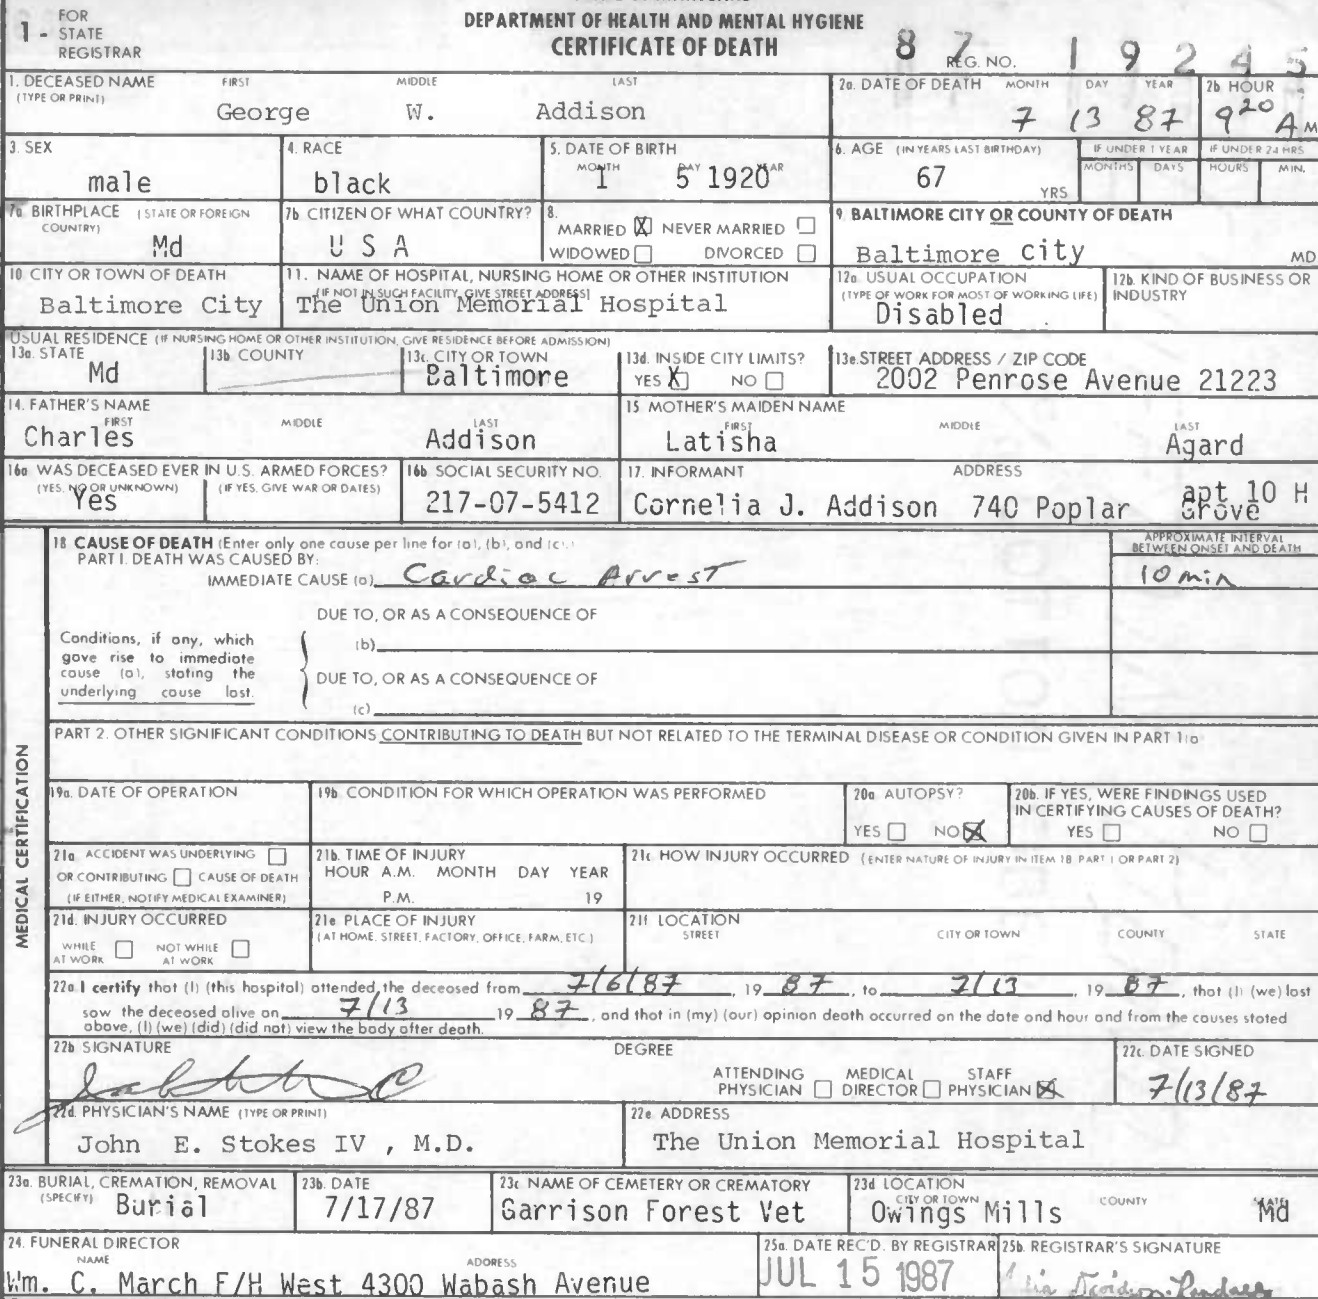 1 - FOR STATE REGISTRAR
DEPARTMENT OF HEALTH AND MENTAL HYGIENE
CERTIFICATE OF DEATH
REG. NO. 87 19245
1. DECEASED NAME (TYPE OR PRINT) FIRST MIDDLE LAST
George W. Addison
2a. DATE OF DEATH MONTH DAY YEAR
7 13 87
2b HOUR
9 20 A M
3. SEX
male
4. RACE
black
5. DATE OF BIRTH MONTH DAY YEAR
1 5 1920
6. AGE (IN YEARS LAST BIRTHDAY)
67 YRS
IF UNDER 1 YEAR MONTHS DAYS
IF UNDER 24 HRS HOURS MIN.
7a BIRTHPLACE (STATE OR FOREIGN COUNTRY)
Md
7b CITIZEN OF WHAT COUNTRY?
U S A
8. MARRIED X NEVER MARRIED
WIDOWED DIVORCED
9. BALTIMORE CITY OR COUNTY OF DEATH
Baltimore City MD
10 CITY OR TOWN OF DEATH
Baltimore City
11. NAME OF HOSPITAL, NURSING HOME OR OTHER INSTITUTION
(IF NOT IN SUCH FACILITY, GIVE STREET ADDRESS)
The Union Memorial Hospital
12a USUAL OCCUPATION
(TYPE OF WORK FOR MOST OF WORKING LIFE)
Disabled
12b. KIND OF BUSINESS OR INDUSTRY
USUAL RESIDENCE (IF NURSING HOME OR OTHER INSTITUTION, GIVE RESIDENCE BEFORE ADMISSION)
13a. STATE
Md
13b COUNTY
13c. CITY OR TOWN
Baltimore
13d. INSIDE CITY LIMITS?
YES X NO
13e. STREET ADDRESS / ZIP CODE
2002 Penrose Avenue 21223
14. FATHER'S NAME FIRST MIDDLE LAST
Charles Addison
15 MOTHER'S MAIDEN NAME FIRST MIDDLE LAST
Latisha Agard
16a WAS DECEASED EVER IN U.S. ARMED FORCES?
(YES, NO OR UNKNOWN) (IF YES, GIVE WAR OR DATES)
Yes
16b SOCIAL SECURITY NO.
217-07-5412
17. INFORMANT ADDRESS
Cornelia J. Addison 740 Poplar Grove apt 10 H
MEDICAL CERTIFICATION
18 CAUSE OF DEATH (Enter only one cause per line for (a), (b), and (c).)
APPROXIMATE INTERVAL BETWEEN ONSET AND DEATH
PART I. DEATH WAS CAUSED BY:
IMMEDIATE CAUSE (a) Cardiac Arrest 10 min
DUE TO, OR AS A CONSEQUENCE OF
(b)
Conditions, if any, which
gave rise to immediate
cause (a), stating the
underlying cause last.
DUE TO, OR AS A CONSEQUENCE OF
(c)
PART 2. OTHER SIGNIFICANT CONDITIONS CONTRIBUTING TO DEATH BUT NOT RELATED TO THE TERMINAL DISEASE OR CONDITION GIVEN IN PART 1(a)
19a. DATE OF OPERATION
19b. CONDITION FOR WHICH OPERATION WAS PERFORMED
20a AUTOPSY?
YES NO X
20b. IF YES, WERE FINDINGS USED IN CERTIFYING CAUSES OF DEATH?
YES NO
21a ACCIDENT WAS UNDERLYING
OR CONTRIBUTING CAUSE OF DEATH
(IF EITHER, NOTIFY MEDICAL EXAMINER)
21b. TIME OF INJURY
HOUR A.M. MONTH DAY YEAR
P.M. 19
21c HOW INJURY OCCURRED (ENTER NATURE OF INJURY IN ITEM 18 PART 1 OR PART 2)
21d. INJURY OCCURRED
WHILE AT WORK NOT WHILE AT WORK
21e PLACE OF INJURY
(AT HOME, STREET, FACTORY, OFFICE, FARM, ETC.)
21f LOCATION
STREET CITY OR TOWN COUNTY STATE
22a I certify that (I) (this hospital) attended the deceased from 7/6/87, 19 87, to 7/13, 19 87, that (I) (we) last
saw the deceased alive on 7/13 19 87, and that in (my) (our) opinion death occurred on the date and hour and from the causes stated
above, (I) (we) (did) (did not) view the body after death.
22b SIGNATURE DEGREE
ATTENDING PHYSICIAN MEDICAL DIRECTOR STAFF PHYSICIAN X
22c. DATE SIGNED
7/13/87
22d. PHYSICIAN'S NAME (TYPE OR PRINT)
John E. Stokes IV , M.D.
22e. ADDRESS
The Union Memorial Hospital
23a. BURIAL, CREMATION, REMOVAL (SPECIFY)
Burial
23b. DATE
7/17/87
23c NAME OF CEMETERY OR CREMATORY
Garrison Forest Vet
23d LOCATION
CITY OR TOWN COUNTY STATE
Owings Mills Md
24. FUNERAL DIRECTOR
NAME ADDRESS
Wm. C. March F/H West 4300 Wabash Avenue
25a. DATE REC'D. BY REGISTRAR
JUL 15 1987
25b. REGISTRAR'S SIGNATURE